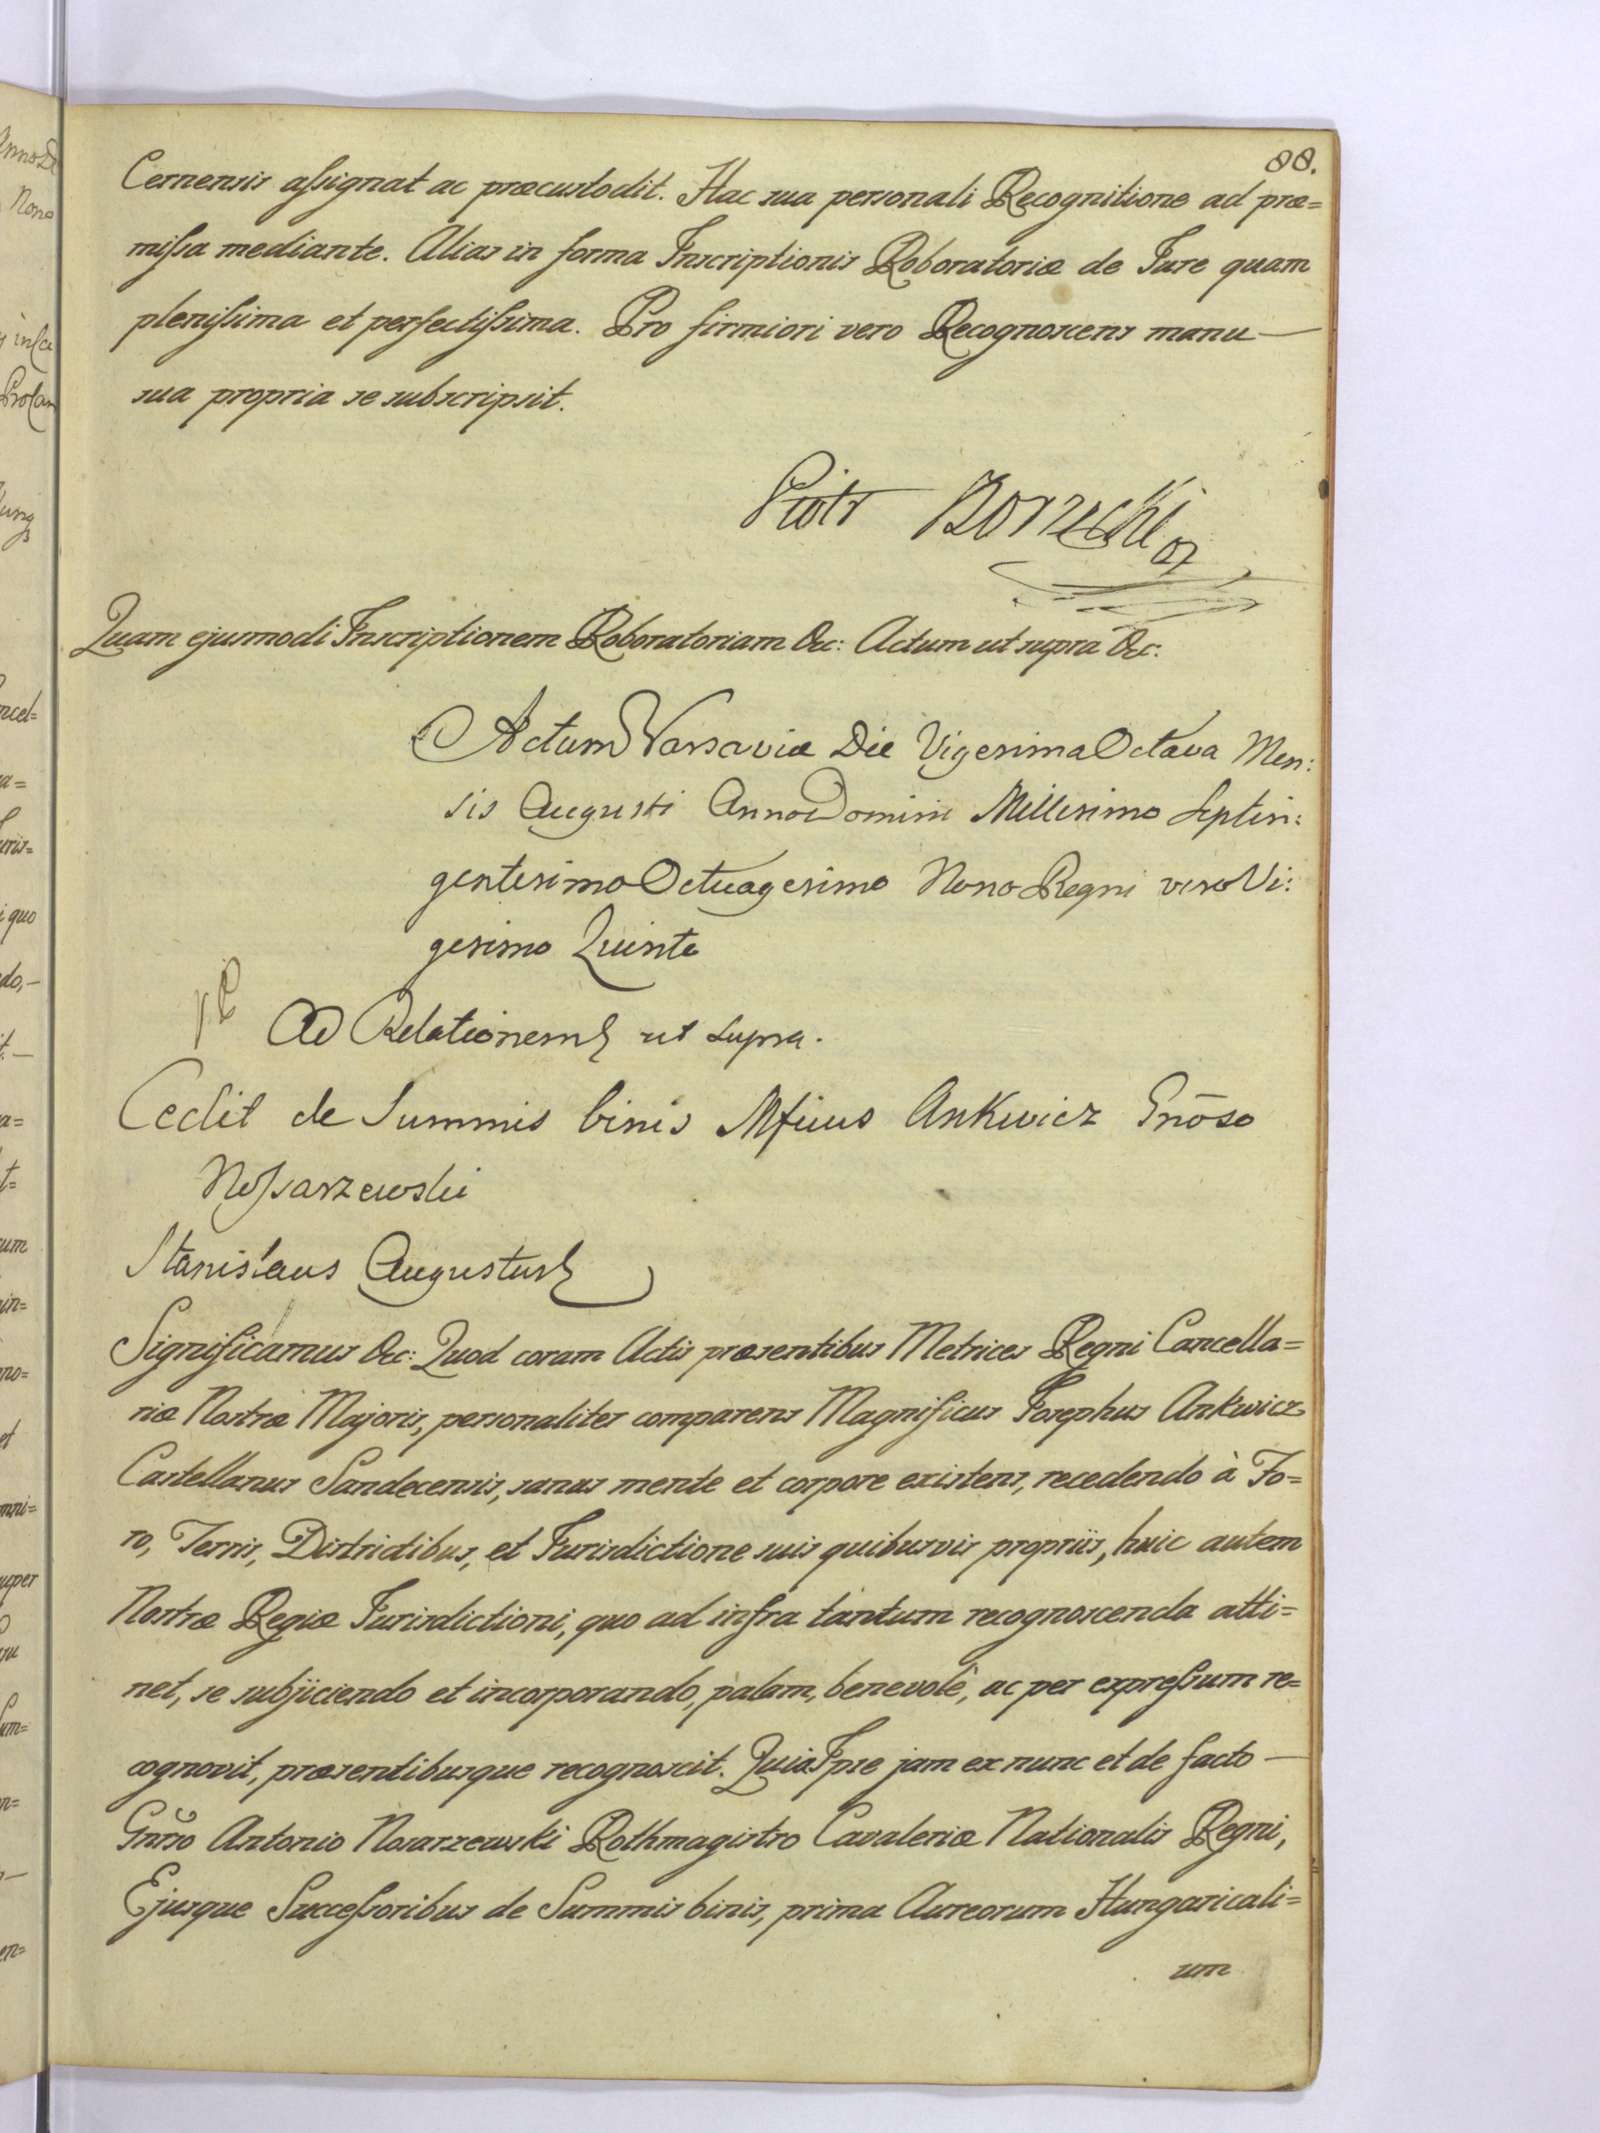 88.
Cernensis assignat ac præcustodit. Hac sua personali Recognitione ad præ=
missa mediante. Alias in forma Inscriptionis Roboratoriæ de Jure quam
plenissima et perfectissima. Pro firmiori vero Recognoscens manu —
sua propria se subscripsit.
Piotr Borzecki
Quam ejusmodi Inscriptionem Roboratoriam &c: Actum ut supra &c:
Actum Varsaviæ Die Vigesima Octava Men:
sis Augusti Anno Domini Millesimo Septin:
gentesimo Octuagesimo Nono Regni vero Vi:
gesimo Quinto
Ad Relationem ut supra.
Cedit de Summis binis Mficus Ankwicz Gnōso
Nossarzewski
Stanislaus Augustus
Significamus &c: Quod coram Actis præsentibus Metrices Regni Cancella=
riæ Nostræ Majoris, personaliter comparens Magnificus Josephus Ankwicz
Castellanus Sandecensis, sanus mente et corpore existens, recedendo à Fo=
ro, Terris, Districtibus, et Jurisdictione suis quibusvis propriis, huic autem
Nostræ Regiæ Jurisdictioni, quo ad infra tantum recognoscenda atti=
net, se subjiciendo et incorporando, palam, benevolè, ac per expressum re=
cognovit, præsentibusque recognoscit. Quia Ipse jam ex nunc et de facto —
Gnrso Antonio Nosarzewski Rothmagistro Cavaleriæ Nationalis Regni,
Ejusque Successoribus de Summis binis, prima Aureorum Hungaricali=
um